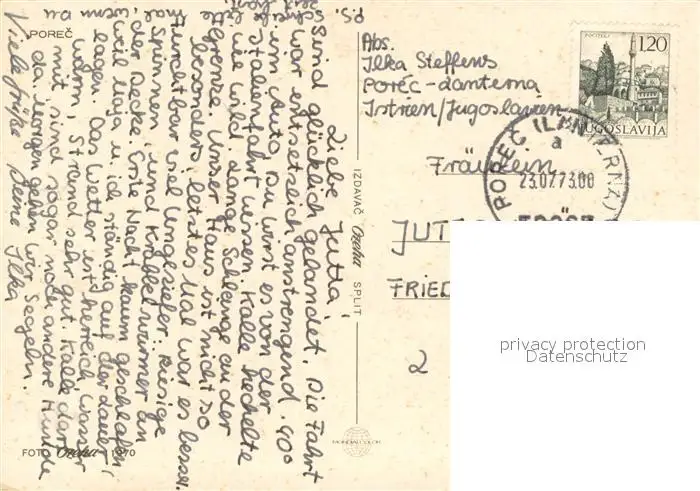 POREČ
P.S.
Liebe Jutta!
Sind glücklich gelandet. Die Fahrt
war entsetzlich anstrengend. 40°
im Auto, du wirst es von der
Italienfahrt wissen. Kalle hechelte
wie wild. Lange Schlange an der
Grenze. Unser Haus ist nicht so
besonders, letztes Mal war es besser.
Furchtbar viel Ungeziefer. Riesige
Spinnen, und Krabbelwürmer an
der Decke. Erste Nacht kaum geschlafen
weil Maja u. ich ständig auf der Lauer
lagen. Das Wetter ist herrlich, Wasser
warm, Strand sehr gut. Kalle darf
mit, sind sogar noch andere Hunde
da. Morgen gehen wir Segeln.
Viele Grüße Deine Ilka
schreibe bitte
mal, wenn du
FOTO Ozeha 1970
IZDAVAČ Ozeha SPLIT
Abs.
Ilka Steffens
Poréc-Lanterna
Istrien/Jugoslawien
POČITELJ
1,20
JUGOSLAVIJA
POREČ (LANTERNA)
a
23.07.73.00
Fräulein
JUTT
FRIED
2
privacy protection
Datenschutz